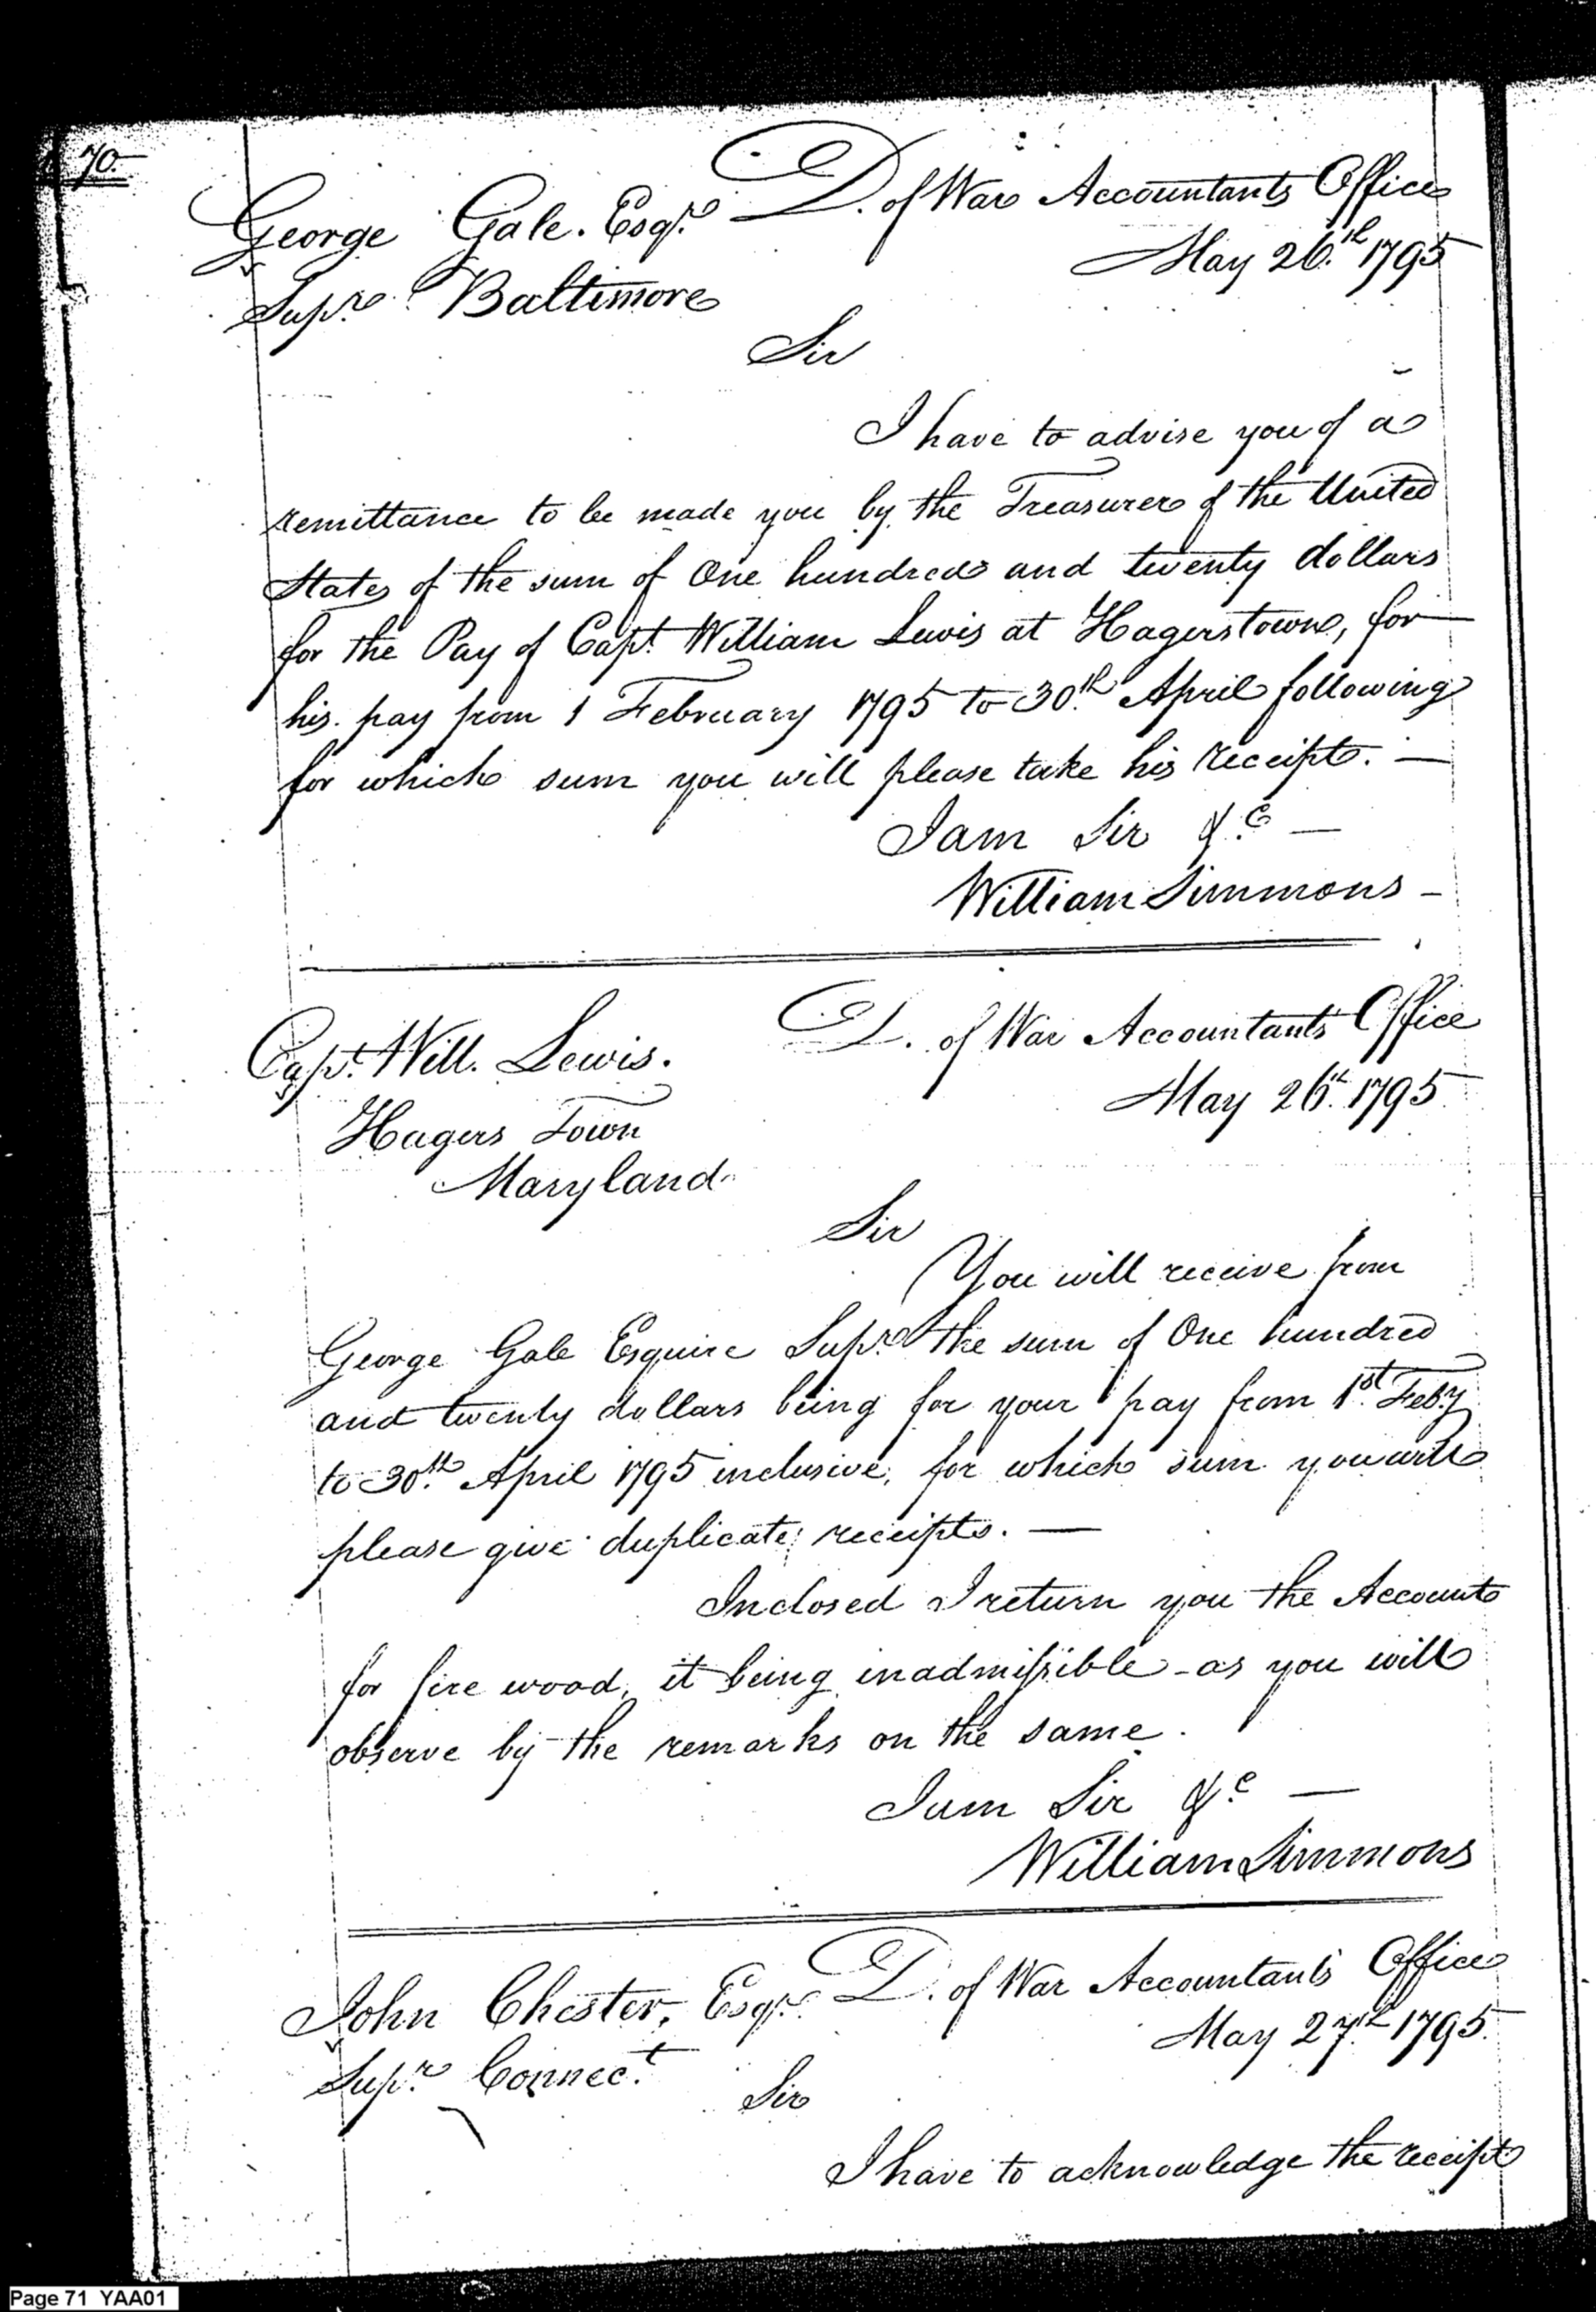 70.
D. of War Accountants Office
George Gale. Esqr.
May 26.th 1795
Supr. Baltimore
Sir
I have to advise you of a
remittance to be made you by the Treasurer of the United
States of the sum of One hundred and twenty dollars
for the Pay of Capt. William Lewis at Hagerstown, for
his pay from 1 February 1795 to 30th. April following
for which sum you will please take his receipt. —
I am Sir &c. —
William Simmons -
D. of War Accountants Office
Capt. Will. Lewis.
May 26th. 1795
Hagers Town
Maryland
Sir
You will receive from
George Gale Esquire Supr. the sum of One hundred
and twenty dollars being for your pay from 1st. Feby
to 30th. April 1795 inclusive, for which sum you will
please give duplicate receipts. —
Inclosed I return you the Accounts
for fire wood, it being inadmissible - as you will
observe by the remarks on the same.
I am Sir &c. —
William Simmons
D. of War Accountants Office
John Chester, Esqr.
May 27th. 1795.
Supr. Connect.
Sir
I have to acknowledge the receipt
Page 71 YAA01